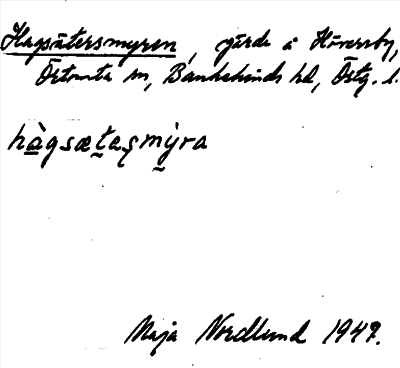 Hagsätersmyren, gärde å Höversby,
Örtomta sn, Bankekinds hd, Östg. l.
hàgsætaʂmỳra
Maja Nordlund 1947.